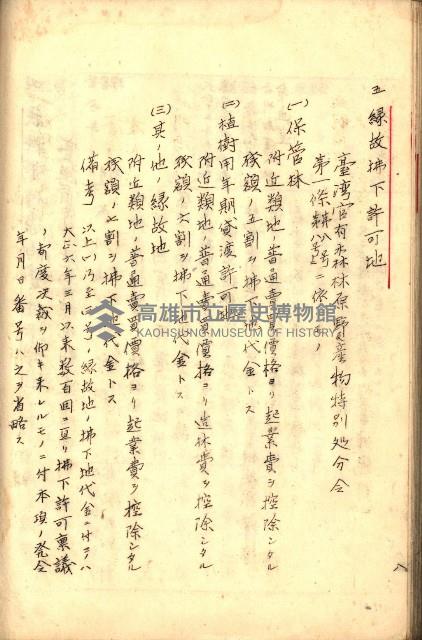 五 緣故拂下許可地
臺灣官有森林原野産物特別処分令
第一條第八号ニ依ルモノ
(一)保管林
附近類地ノ普通賣買價格ヨリ起業費ヲ控除シタル
殘額ノ五割ヲ拂下地代金トス
(二)植樹用年期貸渡許可地
附近類地ノ普通賣買價格ヨリ造林費ヲ控除シタル
殘額ノ六割ヲ拂下地代金トス
(三)其ノ他ノ緣故地
附近類地ノ普通賣買價格ヨリ起業費ヲ控除シタル
殘額ノ七割ヲ拂下地代金トス
備考
以上(一)乃至(三)ノ緣故地ノ拂下地代金ニ付テハ
大正六年三月以來數百回ニ亘リ拂下許可稟議
ノ都度決裁ヲ仰キ來レルモノニ付本項ノ発令
年月日番号ハ之ヲ省略ス
八
高雄市立歷史博物館
KAOHSIUNG MUSEUM OF HISTORY